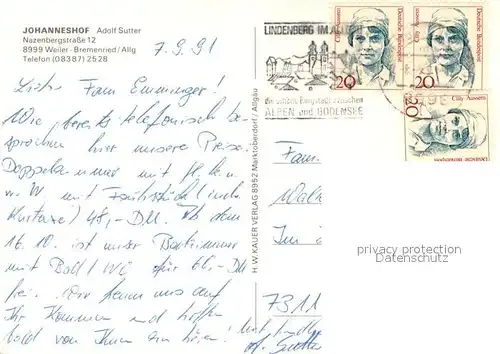 JOHANNESHOF Adolf Sutter
Nazenbergstraße 12
8999 Weiler - Bremenried / Allg
Telefon (08387) 2528
7.9.91
Liebe Fam. Emminger!
Wie bereits telefonisch be-
sprochen hier unsere Preise.
Doppelzimmer mit fl. k. u.
w. W. mit Frühstück (incl.
Kurtaxe) 48,- DM. Ab dem
16.10. ist unser Badzimmer
mit Bad / WC für 66,- DM
frei. Wir freuen uns auf
Ihr Kommen und hoffen
bald von Ihnen zu hören!
A. Sutter
H.W. KAUER VERLAG 8952 Marktoberdorf / Allgäu
LINDENBERG IM ALLGÄU
ALPEN und BODENSEE
Cilly Aussem
Deutsche Bundespost
20
Cilly Aussem
Deutsche Bundespost
20
Cilly Aussem
Deutsche Bundespost
20
Fam.
7311
privacy protection
Datenschutz